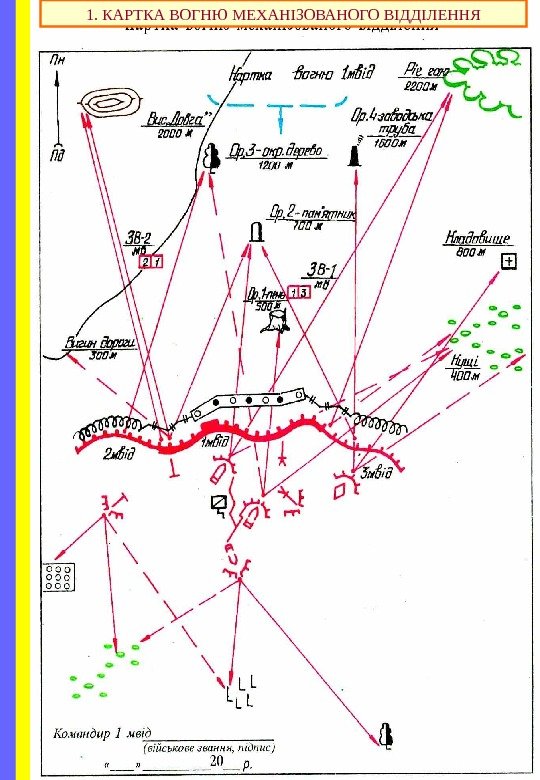 1. КАРТКА ВОГНЮ МЕХАНІЗОВАНОГО ВІДДІЛЕННЯ
Картка вогню механізованого відділення
Пн
Картка вогню 1мвід
Ріг гаю
2200м
Вис. „Довга"
2000м
Ор.4-заводська
труба
1600м
Пд
Ор.3-окр.дерево
1200м
Ор.2-пам'ятник
700м
ЗВ-2
мв
2 1
Кладовище
800м
ЗВ-1
мв
Ор.1-пень
500м
1 3
Вигин дороги
300м
Кущі
400м
1мвід
2мвід
3мвід
Командир 1 мвід
(військове звання, підпис)
«___»____________20___р.